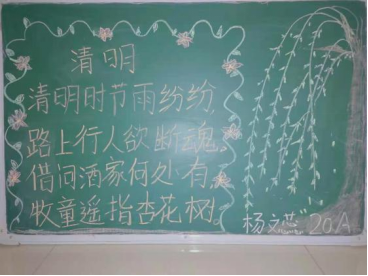 清明
清明时节雨纷纷
路上行人欲断魂
借问酒家何处有
牧童遥指杏花树
杨文芯 20A